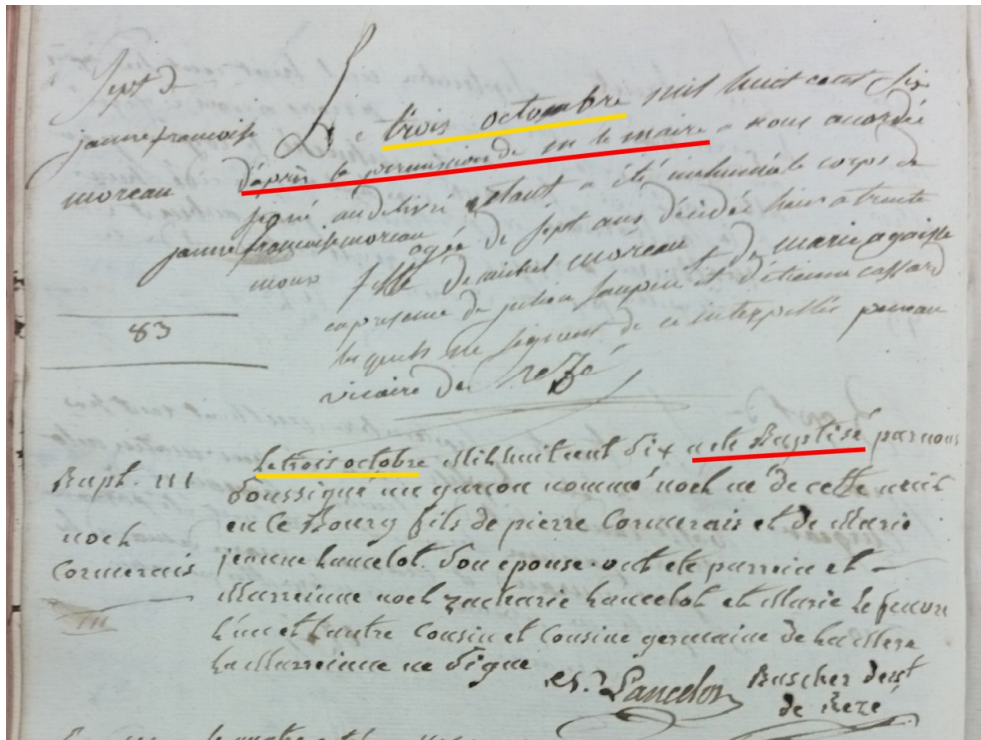 Sept. de
janne françoise
moreau
83
Le trois octombre mil huit cent six
d'après la permission de mr le maire a nous acordée
signé audelivré estant a été inhumé le corps de
janne françoise moreau agée de sept ans décédée hier a trente
fille de michel moreau et de marie agaisse
en presence de julien saupin et d'étienne cassard
lesquels ne signent de ce interpellés
vicaire de Rezé
Bapt. 111
noel
Cormerais
111
Le trois octobre Mil huit cent dix a ete Baptisé par nous
soussigné un garcon nommé noel né de cette nuit
en ce Bourg fils de pierre Cormerais et de Marie
jeanne Lancelot son epouse ont ete parrein et
Marreinne noel zacharie Lancelot et Marie Le feuvre
L'un et L'autre Cousin et Cousine germaine de La Mere
La Marreinne ne Signe
Lancelot Buscher dessert
de Rezé